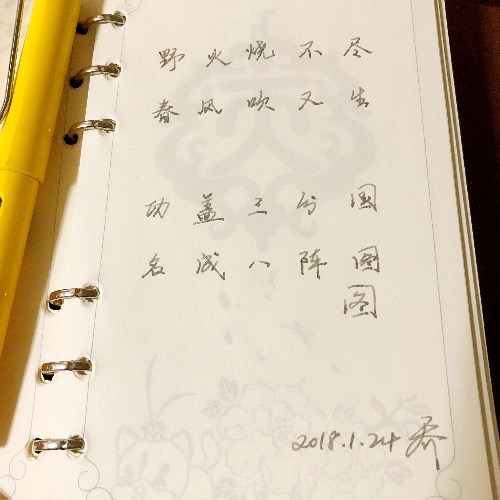 野火烧不尽
春风吹又生
功盖三分国
名成八阵图
图
2018.1.24 乔